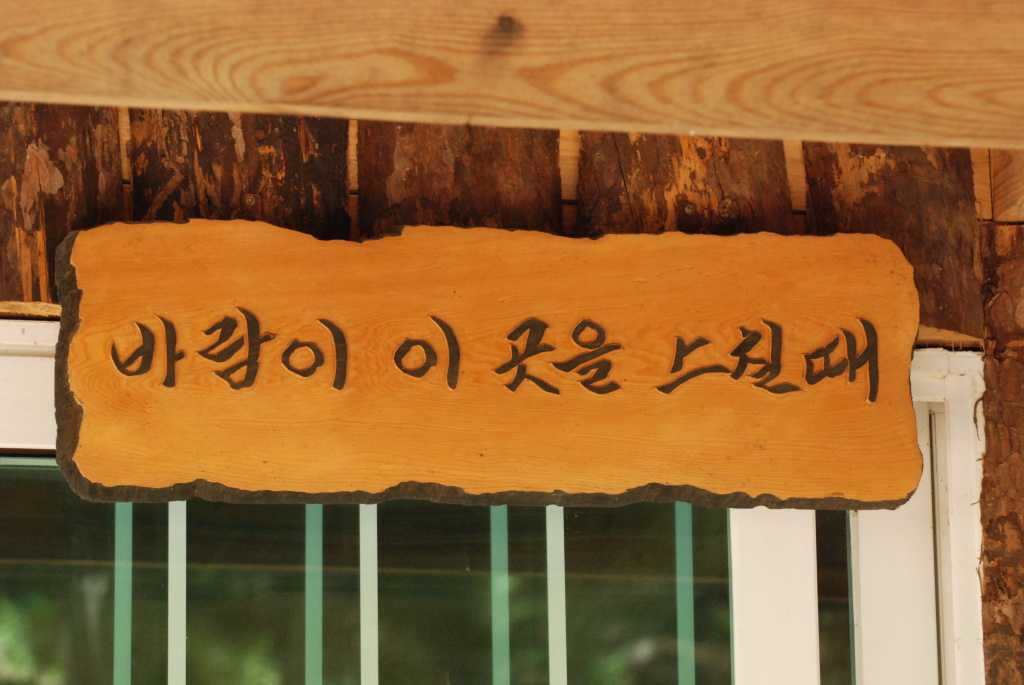 바람이 이 곳을 스칠때